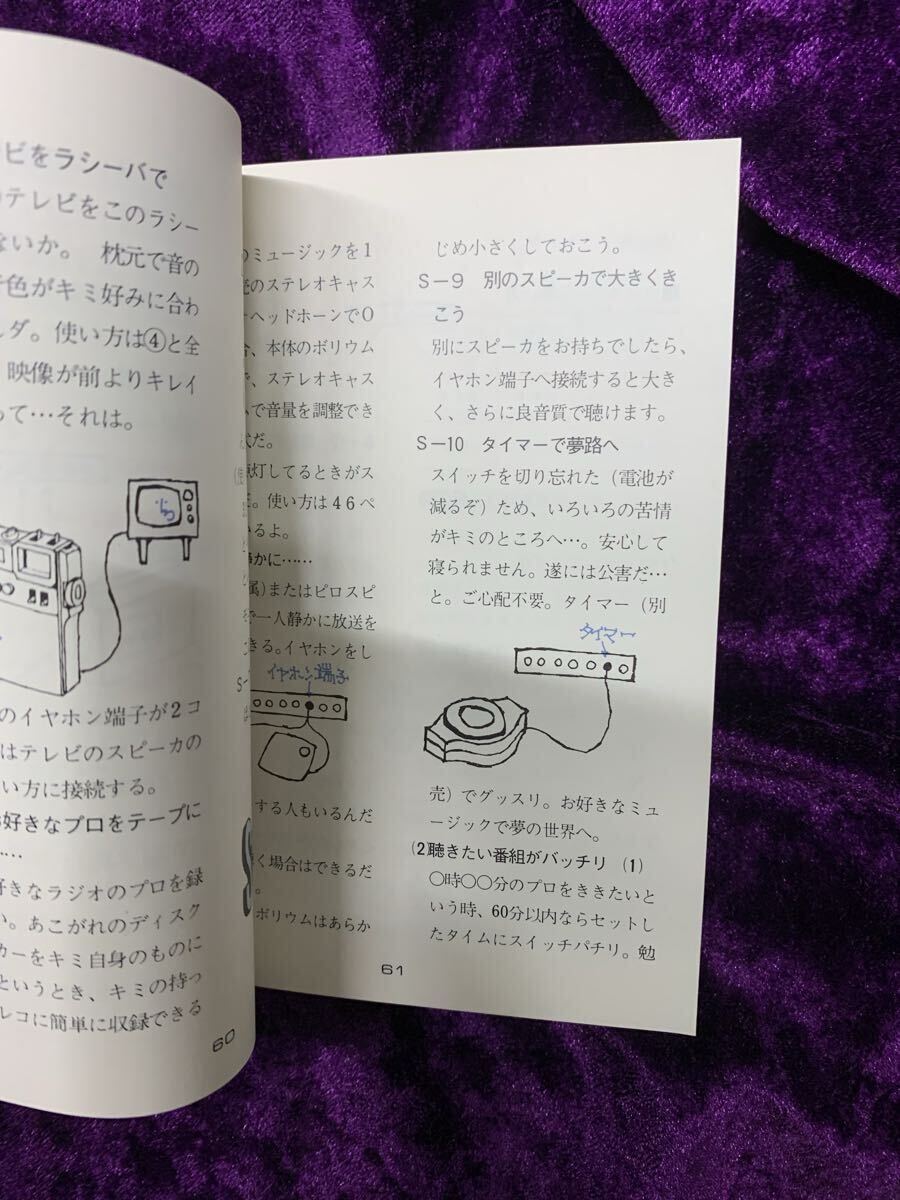 ビをラシーバで
テレビをこのラシー
ないか。 枕元で音の
色がキミ好みに合わ
ルダ。使い方は④と全
映像が前よりキレイ
って…それは。
のイヤホン端子が2コ
はテレビのスピーカの
い方に接続する。
好きなプロをテープに
……
好きなラジオのプロを録
い。あこがれのディスク
カーをキミ自身のものに
というとき、キミの持っ
レコに簡単に収録できる
60
のミュージックを1
売のステレオキャス
ヘッドホーンでO
合、本体のボリウム
で、ステレオキャス
ムで音量を調整でき
式だ。
灯してるときがス
使い方は46ペ
いるよ。
かに……
属)またはピロスピ
で一人静かに放送を
きる。イヤホンをし
イヤホン端子
する人もいるんだ
く場合はできるだ
。
ボリウムはあらか
じめ小さくしておこう。
S－9 別のスピーカで大きくき
こう
別にスピーカをお持ちでしたら、
イヤホン端子へ接続すると大き
く、さらに良音質で聴けます。
S－10 タイマーで夢路へ
スイッチを切り忘れた（電池が
減るぞ）ため、いろいろの苦情
がキミのところへ…。安心して
寝られません。遂には公害だ…
と。ご心配不要。タイマー（別
タイマー
売）でグッスリ。お好きなミュ
ージックで夢の世界へ。
(2)聴きたい番組がバッチリ (1)
〇時〇〇分のプロをききたいと
いう時、60分以内ならセットし
たタイムにスイッチパチリ。勉
61